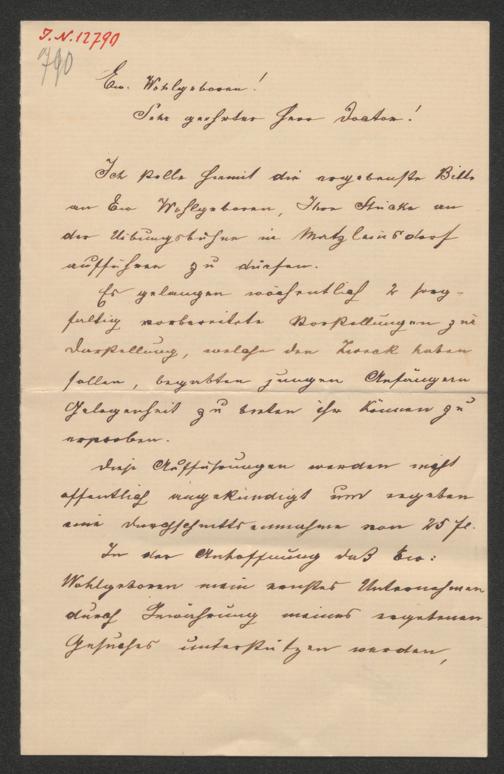 I. N. 12790
790
Ew. Wohlgeboren!
Sehr geehrter Herr Doctor!
Ich stelle hiemit die ergebenste Bitte
an Ew Wohlgeboren, Ihre Stücke an
der Uibungsbühne in Matzleinsdorf
aufführen zu dürfen.
Es gelangen wöchentlich 2 sorg-
fältig vorbereitete Vorstellungen zur
Darstellung, welche den Zweck haben
sollen, begabten jungen Anfängern
Gelegenheit zu bieten ihr Können zu
erproben.
Diese Aufführungen werden nicht
öffentlich angekündigt und ergeben
eine Durchschnittseinnahme von 25 fl.
In der Anhoffnung daß Ew:
Wohlgeboren mein ernstes Unternehmen
durch Gewährung meines ergebenen
Gesuches unterstützen werden,